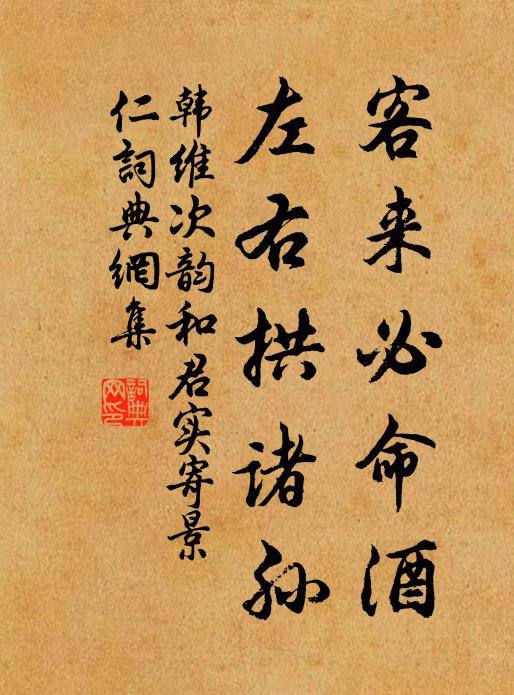 客来必命酒
左右拱诸孙
韩维次韵和君实寄景
仁词典網集
詞典網印